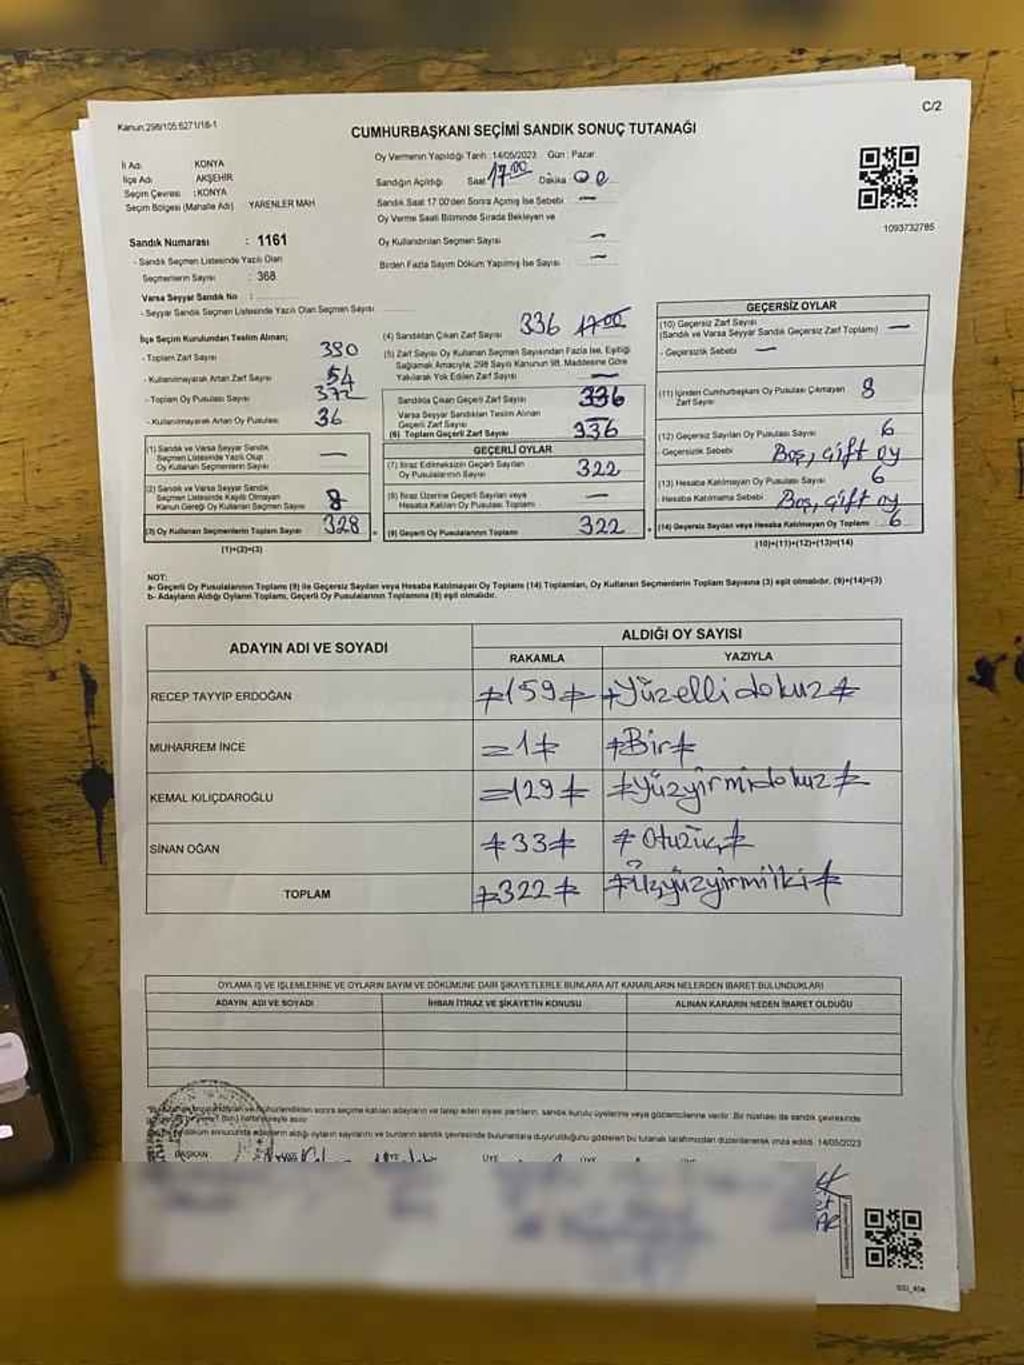 C/2
Kanun:298/105:6271/16-1
CUMHURBAŞKANI SEÇİMİ SANDIK SONUÇ TUTANAĞI
İl Adı: KONYA
İlçe Adı: AKŞEHİR
Seçim Çevresi :KONYA
Seçim Bölgesi (Mahalle Adı) YARENLER MAH
Oy Vermenin Yapıldığı Tarih :14/05/2023 Gün : Pazar
Sandığın Açıldığı Saat 17:00 Dakika
Sandık Saat 17:00'den Sonra Açılmış İse Sebebi —
Oy Verme Saati Bitiminde Sırada Bekleyen ve
Oy Kullandırılan Seçmen Sayısı —
Birden Fazla Sayım Döküm Yapılmış İse Sayısı —
1093732785
Sandık Numarası : 1161
- Sandık Seçmen Listesinde Yazılı Olan
Seçmenlerin Sayısı : 368
Varsa Seyyar Sandık No :
- Seyyar Sandık Seçmen Listesinde Yazılı Olan Seçmen Sayısı
İlçe Seçim Kurulundan Teslim Alınan;
- Toplam Zarf Sayısı 390
- Kullanılmayarak Artan Zarf Sayısı 54
- Toplam Oy Pusulası Sayısı 372
- Kullanılmayarak Artan Oy Pusulası 36
(1) Sandık ve Varsa Seyyar Sandık
Seçmen Listesinde Yazılı Olup
Oy Kullanan Seçmenlerin Sayısı —
(2) Sandık ve Varsa Seyyar Sandık
Seçmen Listesinde Kayıtlı Olmayan
Kanun Gereği Oy Kullanan Seçmen Sayısı 8
(3) Oy Kullanan Seçmenlerin Toplam Sayısı 328
(1)+(2)=(3)
(4) Sandıktan Çıkan Zarf Sayısı 336 17:00
(5) Zarf Sayısı Oy Kullanan Seçmen Sayısından Fazla İse, Eşitliği
Sağlamak Amacıyla, 298 Sayılı Kanunun 98. Maddesine Göre
Yakılarak Yok Edilen Zarf Sayısı —
Sandıkta Çıkan Geçerli Zarf Sayısı 336
Varsa Seyyar Sandıktan Teslim Alınan
Geçerli Zarf Sayısı
(6) Toplam Geçerli Zarf Sayısı 336
GEÇERLİ OYLAR
(7) İtiraz Edilmeksizin Geçerli Sayılan
Oy Pusulalarının Sayısı 322
(8) İtiraz Üzerine Geçerli Sayılan veya
Hesaba Katılan Oy Pusulası Toplamı —
(9) Geçerli Oy Pusulalarının Toplamı 322
GEÇERSİZ OYLAR
(10) Geçersiz Zarf Sayısı
(Sandık ve Varsa Seyyar Sandık Geçersiz Zarf Toplamı) —
- Geçersizlik Sebebi —
(11) İçinden Cumhurbaşkanı Oy Pusulası Çıkmayan
Zarf Sayısı 8
(12) Geçersiz Sayılan Oy Pusulası Sayısı 6
- Geçersizlik Sebebi Boş, çift oy
(13) Hesaba Katılmayan Oy Pusulası Sayısı 6
- Hesaba Katılmama Sebebi Boş, çift oy
(14) Geçersiz Sayılan veya Hesaba Katılmayan Oy Toplamı 6
(10)+(11)+(12)+(13)=(14)
NOT:
a- Geçerli Oy Pusulalarının Toplamı (9) ile Geçersiz Sayılan veya Hesaba Katılmayan Oy Toplamı (14) Toplamları, Oy Kullanan Seçmenlerin Toplam Sayısına (3) eşit olmalıdır. (9)+(14)=(3)
b- Adayların Aldığı Oyların Toplamı, Geçerli Oy Pusulalarının Toplamına (9) eşit olmalıdır.
ADAYIN ADI VE SOYADI ALDIĞI OY SAYISI
RAKAMLA YAZIYLA
RECEP TAYYİP ERDOĞAN ≠159≠ ≠Yüzellidokuz≠
MUHARREM İNCE =1≠ ≠Bir≠
KEMAL KILIÇDAROĞLU =129≠ ≠Yüzyirmidokuz≠
SİNAN OĞAN ≠33≠ ≠Otuzüç≠
TOPLAM ≠322≠ ≠Üçyüzyirmiiki≠
OYLAMA İŞ VE İŞLEMLERİNE VE OYLARIN SAYIM VE DÖKÜMÜNE DAİR ŞİKAYETLERLE BUNLARA AİT KARARLARIN NELERDEN İBARET BULUNDUKLARI
ADAYIN ADI VE SOYADI İHBAR İTİRAZ VE ŞİKAYETİN KONUSU ALINAN KARARIN NEDEN İBARET OLDUĞU
sonra seçime katılan adayların ve talep eden siyasi partilerin, sandık kurulu üyelerine veya gözlemcilerine verilir. Bir nüshası da sandık çevresinde
döküm sonucunda adayların aldığı oyların sayılarını ve bunların sandık çevresinde bulunanlara duyurulduğunu gösteren bu tutanak tarafımızdan düzenlenerek imza edildi. 14/05/2023
BAŞKAN ÜYE ÜYE ÜYE